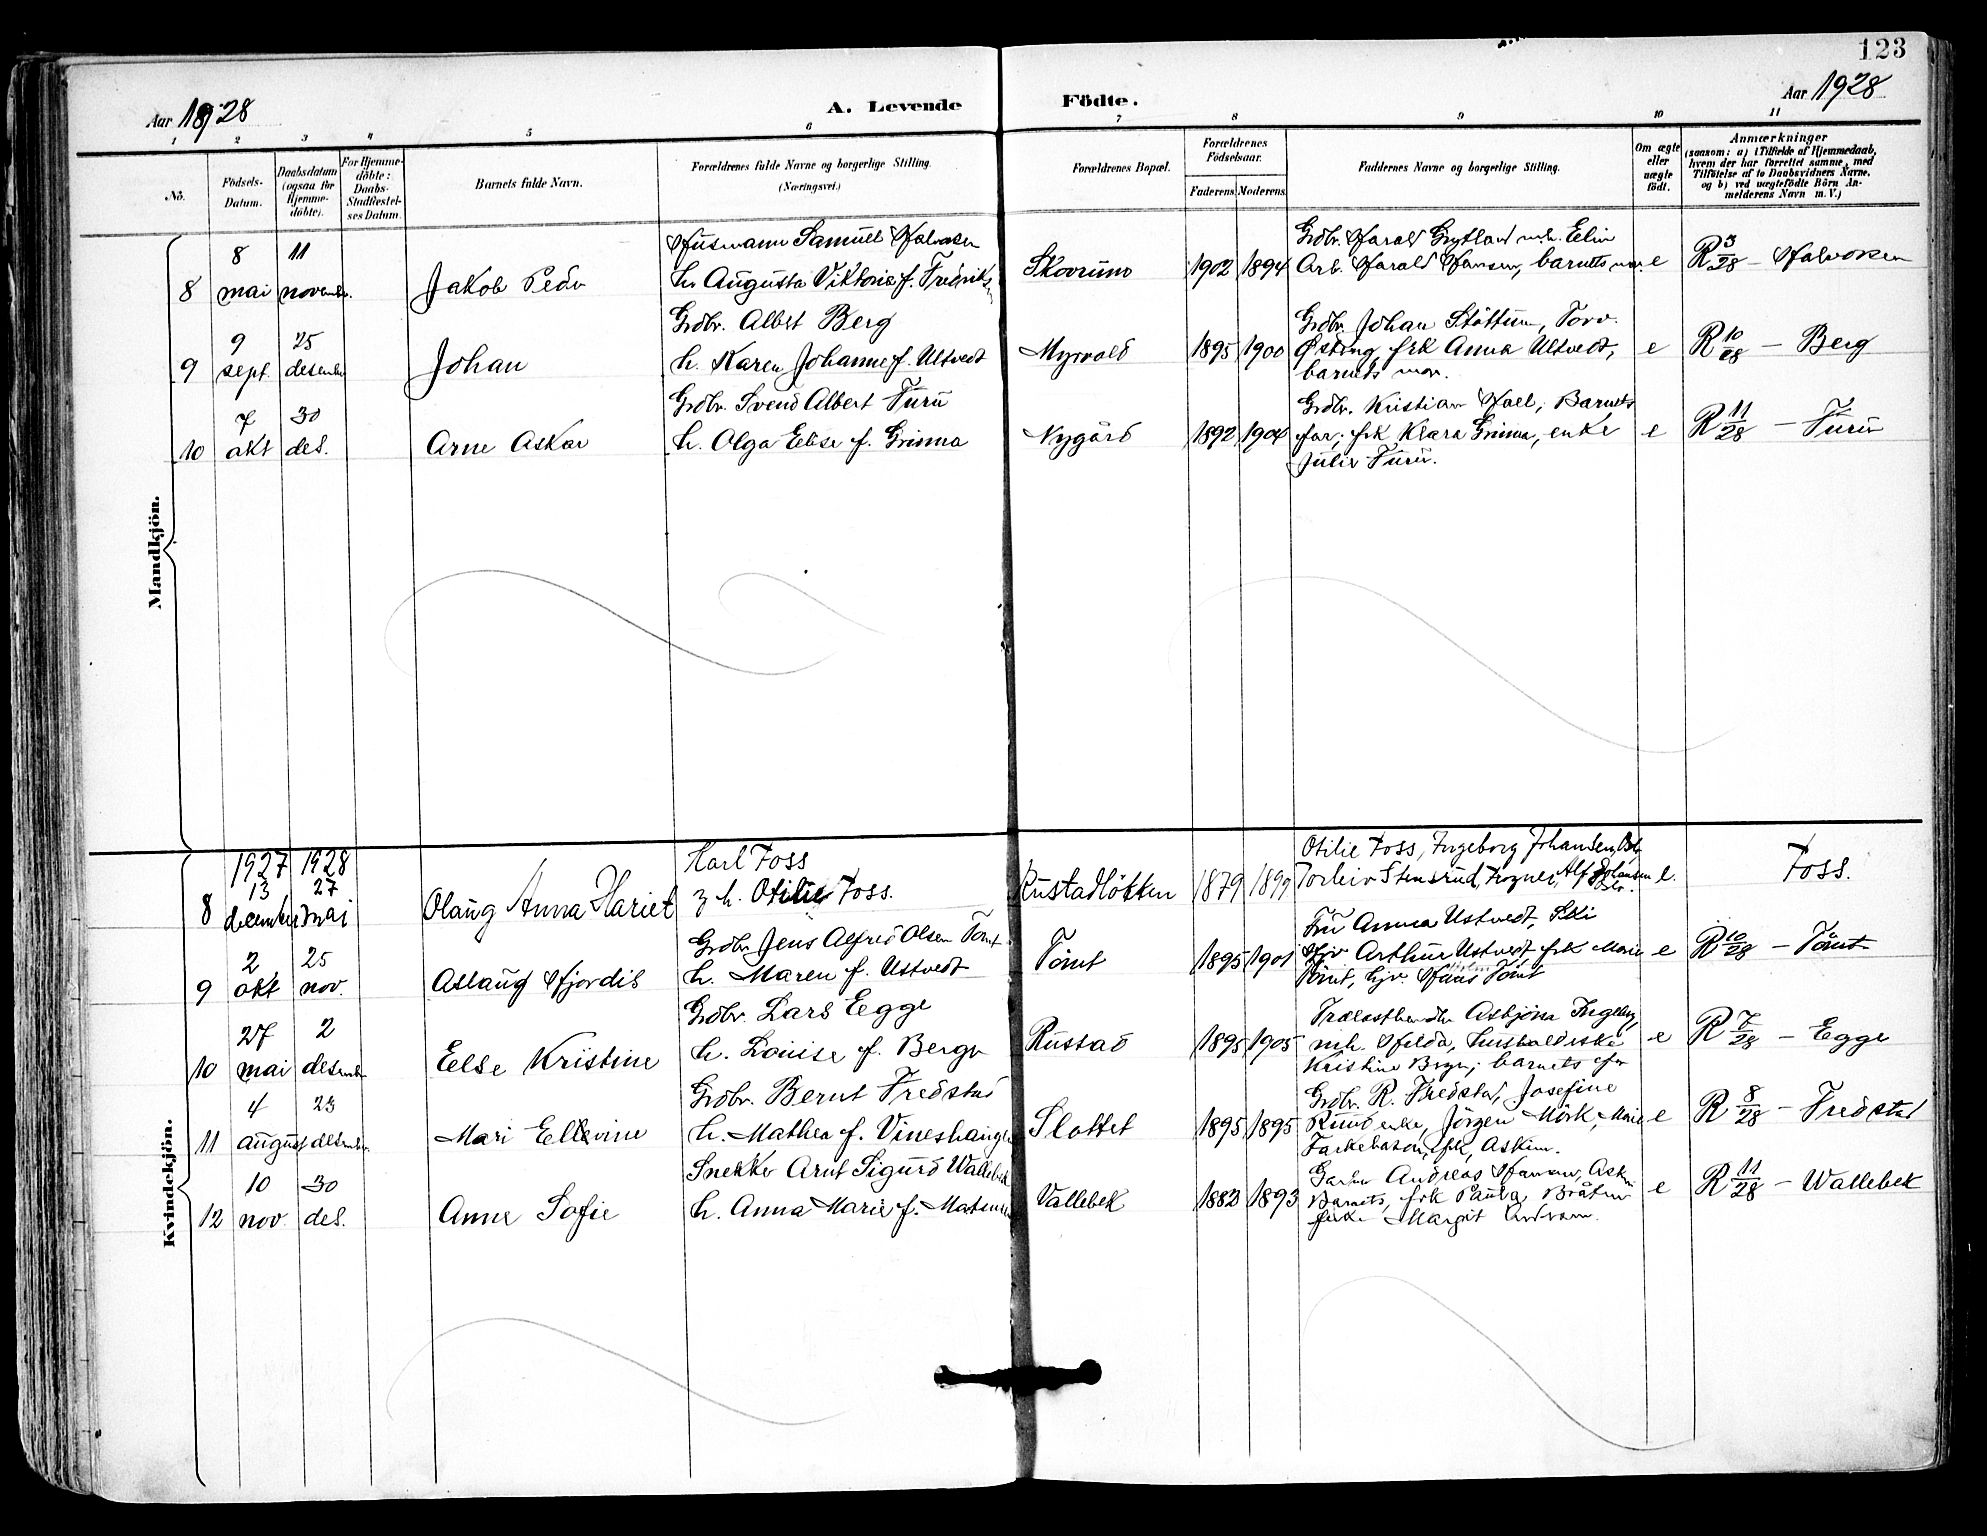 123
Aar 1928
A. Levende Födte.
Aar 1928
1 2 3 4 5 6 7 8 9 10 11
No.
Födsels-Datum.
Daabsdatum (ogsaa for Hjemme-döbte).
For Hjemme-döbte: Daabs-Stadfæstel-ses Datum.
Barnets fulde Navn.
Forældrenes fulde Navne og borgerlige Stilling. (Næringsvei.)
Forældrenes Bopæl.
Forældrenes Födselsaar.
Faderens. Moderens.
Faddernes Navne og borgerlige Stilling.
Om ægte eller uægte födt.
Anmærkninger
(saasom: a) i Tilfælde af Hjemmedaab, hvem der har forrettet samme, med Tilföielse af to Daabsvidners Navne, og b) ved uægtefödte Börn An-melderens Navn m. V.)
Mandkjön.
8
8 mai
11 novembr.
Jakob Peder
Husmann Samuel Halvorsen
h. Augusta Viktoria f. Fredriks
Skovrund
1902 1894
Grdbr. Harald Grytland m.h. Elin
Arb. Harald Hansen, barnets mor.
e
R 3/28 – Halvorsen
9
9 sept.
25 desembr
Johan
Grdbr. Albert Berg
h. Karen Johanne f. Ultvedt
Myrvold
1895 1900
Grdbr. Johan Støttum, Torv.
Østeng, frk Anna Ultvedt,
barnets mor.
e
R 10/28 – Berg
10
7 okt
30 des.
Arne Askar
Grdbr. Svend Albert Furu
h. Olga Elise f. Grimma
Nygård
1892 1904
Grdbr. Kristian Hael, Barnets
far, frk Klara Grimma, enke
Julie Furu.
e
R 11/28 – Furu
Kvindekjön.
8
1927 13 december
1928 27 mai
Olaug Anna Hariet
Karl Foss
h. Otilie Foss.
Rustadløkken
1879 1899
Otilie Foss, Ingeborg Johansen, Oslo
Torleiv Stensrud, Trogner, Alf Johansen
e.
Foss.
9
2 okt
25 nov.
Aslaug Hjordis
Grdbr. Jens Alfred Olsen Tømt
h. Maren f. Ustvedt
Tømt
1895 1901
Fru Anna Ustvedt, Ski
Hjv Arthur Ustvedt frk Marie
Tømt, hjv. Hans Tømt
e
R 10/28 – Tømt
10
27 mai
2 desembr
Else Kristine
Grdbr. Lars Egge
h. Louise f. Berger
Rustad
1895 1905
Trælasthandler Asbjørn
m.h. Hilda,
Kristine, barnets far
e
R 7/28 – Egge
11
4 august
23 desembr.
Mari Ellevine
Grdbr. Bernt Fredstad
h. Mathea f. Vineshaugen
Slottet
1895 1895
Grdbr. R. Fredstad, Josefine
Ruud enke, Jørgen Mörk, Marie
frk, Askim.
e
R 8/28 – Fredstad
12
10 nov.
30 des.
Anne Sofie
Snekker Arnt Sigurd Wallebek
h. Anna Marie f. Matsen
Vallebek
1883 1893
Andreas Hansen, Askim
Barnets, frk Paula Bråten
Margit
e
R 11/28 – Wallebek